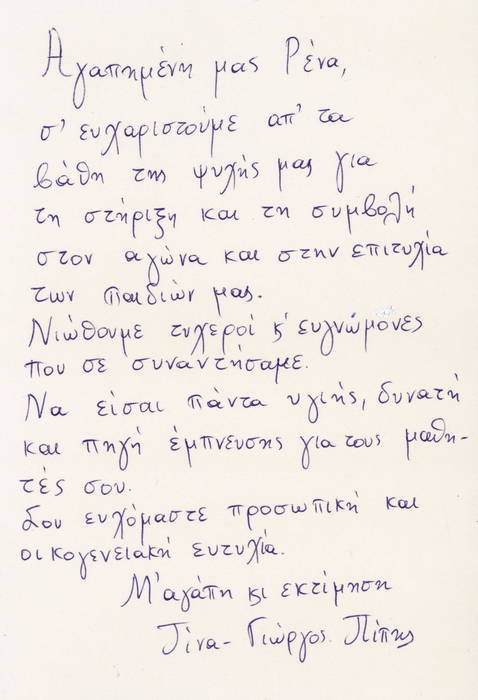 Αγαπημένη μας Ρένα,
σ' ευχαριστούμε απ' τα
βάθη της ψυχής μας για
τη στήριξη και τη συμβολή
στον αγώνα και στην επιτυχία
των παιδιών μας.
Νιώθουμε τυχεροί κ' ευγνώμονες
που σε συναντήσαμε.
Να είσαι πάντα υγιής, δυνατή
και πηγή έμπνευσης για τους μαθη-
τές σου.
Σου ευχόμαστε προσωπική και
οικογενειακή ευτυχία.
Μ'αγάπη κι εκτίμηση
Τίνα - Γιώργος Πίπης